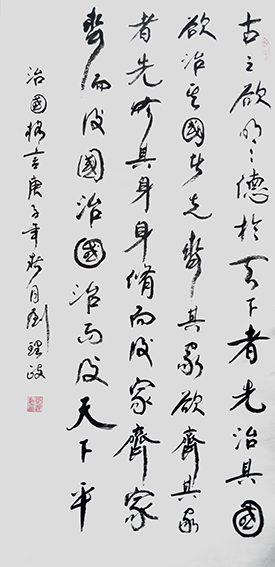 古之欲明明德於天下者先治其國
欲治其國者先齊其家欲齊其家
者先修其身身脩而後家齊家
齊而後國治國治而後天下平
治國格言庚子年於月劉理政